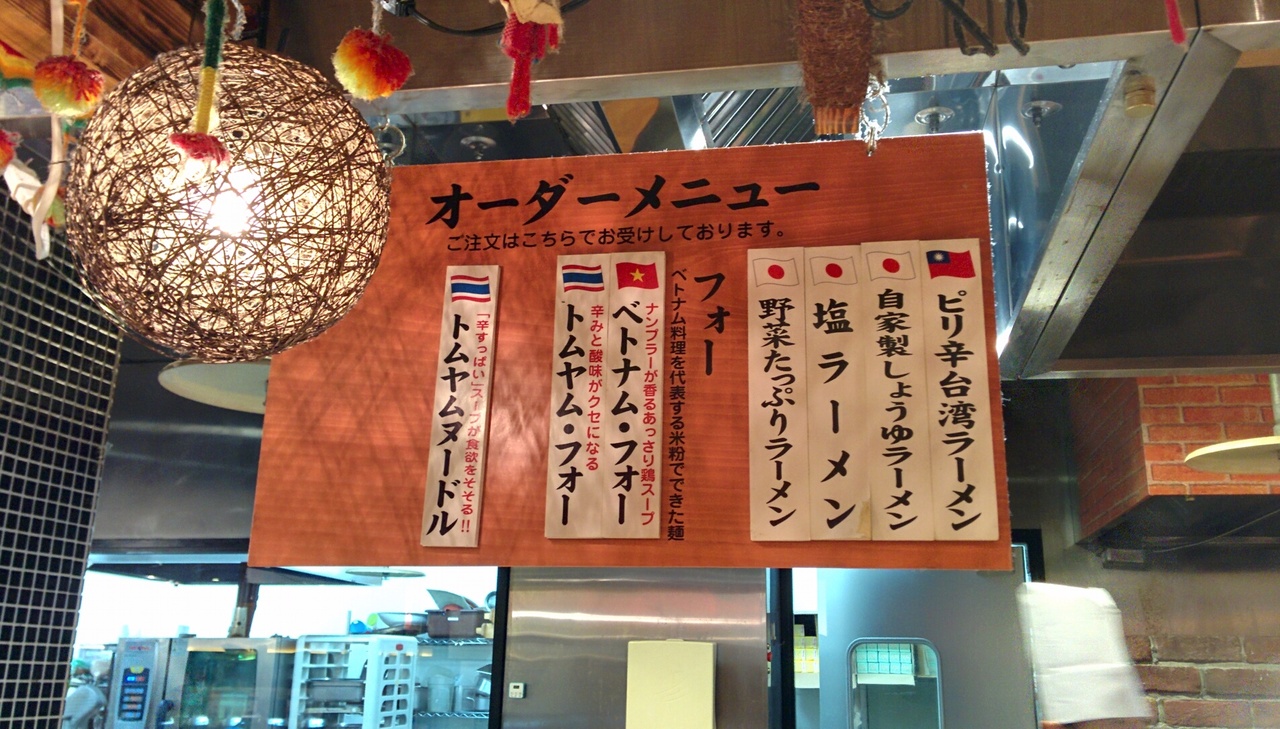 オーダーメニュー
ご注文はこちらでお受けしております。
ピリ辛台湾ラーメン
自家製しょうゆラーメン
塩ラーメン
野菜たっぷりラーメン
フォー
ベトナム料理を代表する米粉でできた麺
ナンプラーが香るあっさり鶏スープ
ベトナム・フォー
辛みと酸味がクセになる
トムヤム・フォー
「辛すっぱい」スープが食欲をそそる!!
トムヤムヌードル